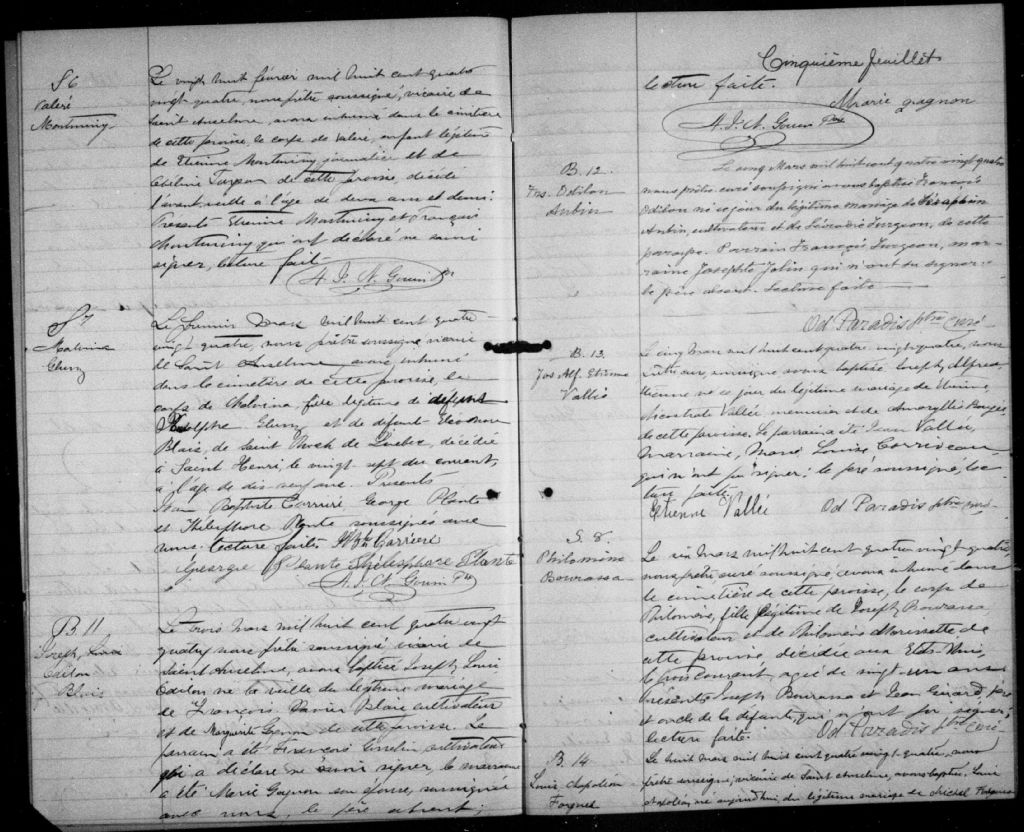 S 6
Valeré
Montminy
Le vingt huit février mil huit cent quatre
vingt quatre, nous prêtre soussigné, vicaire de
Saint Anselme, avons inhumé dans le cimetière
de cette paroisse, le corps de Valeré, enfant légitime
de Etienne Montminy journalier et de
Turgeon de cette paroisse, décédé
l'avant veille à l'âge de deux ans et demi.
Presents Etienne Montminy et François
Montminy qui ont déclaré ne savoir
signer, lecture faite.
A. J. N. Gouin Ptre
S 7
Malvina
Le premier Mars mil huit cent quatre
vingt quatre, nous prêtre soussigné vicaire
de Saint Anselme avons inhumé
dans le cimetière de cette paroisse, le
corps de Malvina, fille légitime de défunt
et de défunte Eléonore
Blais, de Saint Roch de Quebec, décédée
à Saint Henri le vingt sept du courant,
à l'âge de dix neuf ans. Presents
Jean Baptiste Carrière George Plante
et Thélesphore Plante soussignés avec
nous. Lecture faite. J Bte Carriere
George Plante Thélesphore Plante
A. J. N. Gouin Ptre
B. 11
Joseph, Louis
Odilon
Blais
Le trois Mars mil huit cent quatre vingt
quatre, nous prêtre soussigné vicaire de
Saint Anselme, avons baptisé Joseph, Louis
Odilon né la veille du légitime mariage
de François Xavier Blais cultivateur
et de Marguerite Gagnon de cette paroisse. Le
parrain a été François cultivateur
qui a déclaré ne savoir signer, la marraine
a été Marie Gagnon son épouse, soussignée
avec nous, le père absent;
Cinquième feuillet
lecture faite.
Marie gagnon
A. J. N. Gouin Ptre
B. 12.
Frs. Odilon
Aubin
Le cinq Mars mil huit cent quatre vingt quatre
nous prêtre curé soussigné avons baptisé François
Odilon né ce jour du légitime mariage de Séraphin
Aubin, cultivateur et de Turgeon, de cette
paroisse. Parrain François Turgeon, mar-
raine Josephte Jolin qui n'ont su signer
le père absent. Lecture faite
Od Paradis ptre curé
B. 13.
Jos Alf. Etienne
Vallée
Le cinq Mars mil huit cent quatre vingt quatre, nous
prêtre curé, soussigné avons baptisé Joseph, Alfred,
Etienne né ce jour du légitime mariage de Etienne
Vallée meunier et de Amaryllis
de cette paroisse. Le parrain a été Jean Vallée,
Marraine, Marie Louise Corriveau
qui n'ont su signer: le père soussigné, lec-
ture faite.
Etienne Vallée Od Paradis ptre curé
S. 8.
Philomène
Bourassa
Le six Mars mil huit cent quatre vingt quatre,
nous prêtre curé soussigné avons inhumé dans
le cimetière de cette paroisse, le corps de
Philomène, fille légitime de Joseph Bourassa
cultivateur et de Philomène Morissette de
cette paroisse, décédée aux Etats Unis
le trois courant, agée de vingt-un ans
Présents Joseph Bourassa et Jean Girard, père
et oncle de la défunte, qui n'ont su signer;
lecture faite. Od Paradis ptre curé
B. 14
Louis Napoléon
Forgues
Le huit Mars mil huit cent quatre vingt quatre, nous
prêtre soussigné, vicaire de Saint Anselme, avons baptisé Louis
Napoléon, né aujourd'hui, du légitime mariage de Michel Forgues